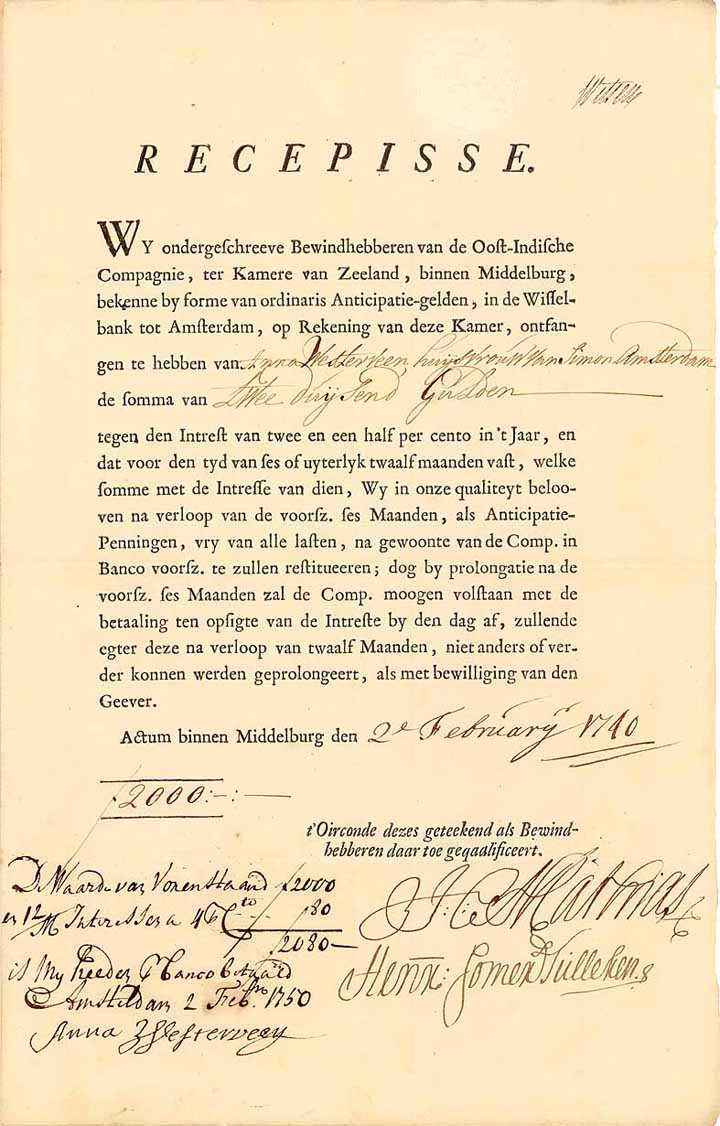 RECEPISSE.
WY ondergeſchreeve Bewindhebberen van de Ooſt-Indiſche
Compagnie, ter Kamere van Zeeland, binnen Middelburg,
bekenne by forme van ordinaris Anticipatie-gelden, in de Wiſſel-
bank tot Amſterdam, op Rekening van deze Kamer, ontfan-
gen te hebben van Anna Westerveen, huijsvrouw van Simon Amsterdam
de ſomma van Twee duijsend Gulden
tegen den Intreſt van twee en een half per cento in 't Jaar, en
dat voor den tyd van ſes of uyterlyk twaalf maanden vaſt, welke
ſomme met de Intreſſe van dien, Wy in onze qualiteyt beloo-
ven na verloop van de voorſz. ſes Maanden, als Anticipatie-
Penningen, vry van alle laſten, na gewoonte van de Comp. in
Banco voorſz. te zullen reſtitueeren; dog by prolongatie na de
voorſz. ſes Maanden zal de Comp. moogen volſtaan met de
betaaling ten opſigte van de Intreſte by den dag af, zullende
egter deze na verloop van twaalf Maanden, niet anders of ver-
der konnen werden geprolongeert, als met bewilliging van den
Geever.
Actum binnen Middelburg den 2e February 1740
f2000:-:-
t'Oirconde dezes geteekend als Bewind-
hebberen daar toe geqaalificeert.
D Waarde van Vorenstaand f2000
en 12/M Interessen a 4 P Cto f80
2080-
is My Reeder P Banco betaald
Amsteldam 2 Febr. 1750
Anna Westerveen
J: C: Mathias
Henr: